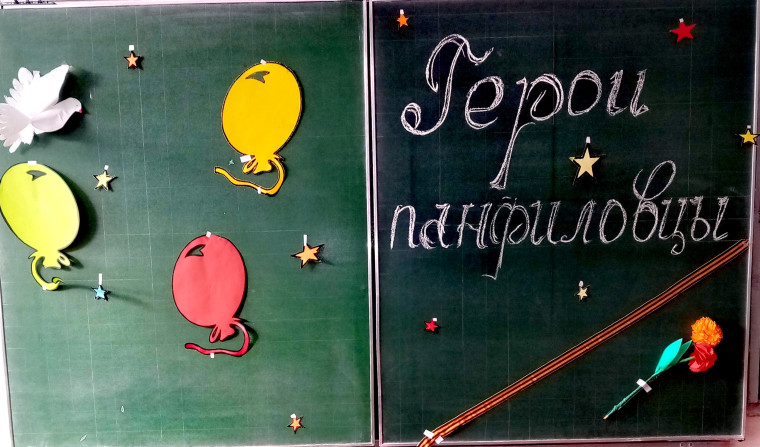 Герои
панфиловцы